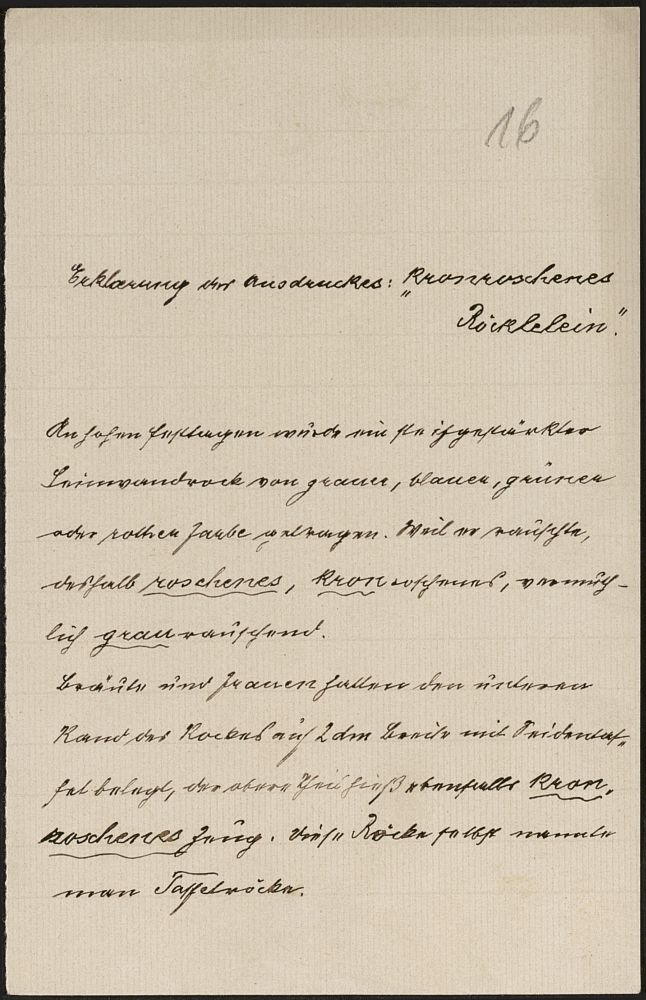 16
Erklärung des Ausdruckes: „Kronroschenes
Röcklelein".
An hohen Festtagen wurde ein steifgestärkter
Leinwandrock von grauer, blauer, grüner
oder rother Farbe getragen. Weil er rauschte,
deshalb roschenes, kronroschenes, vermuth-
lich graurauschend.
Bräute und Frauen hatten den unteren
Rand des Rockes auf 2 dm Breite mit Seidentaf-
fet belegt, der obere Theil hieß ebenfalls kron-
roschenes Zeug. Diese Röcke selbst nannte
man Taffetröcke.